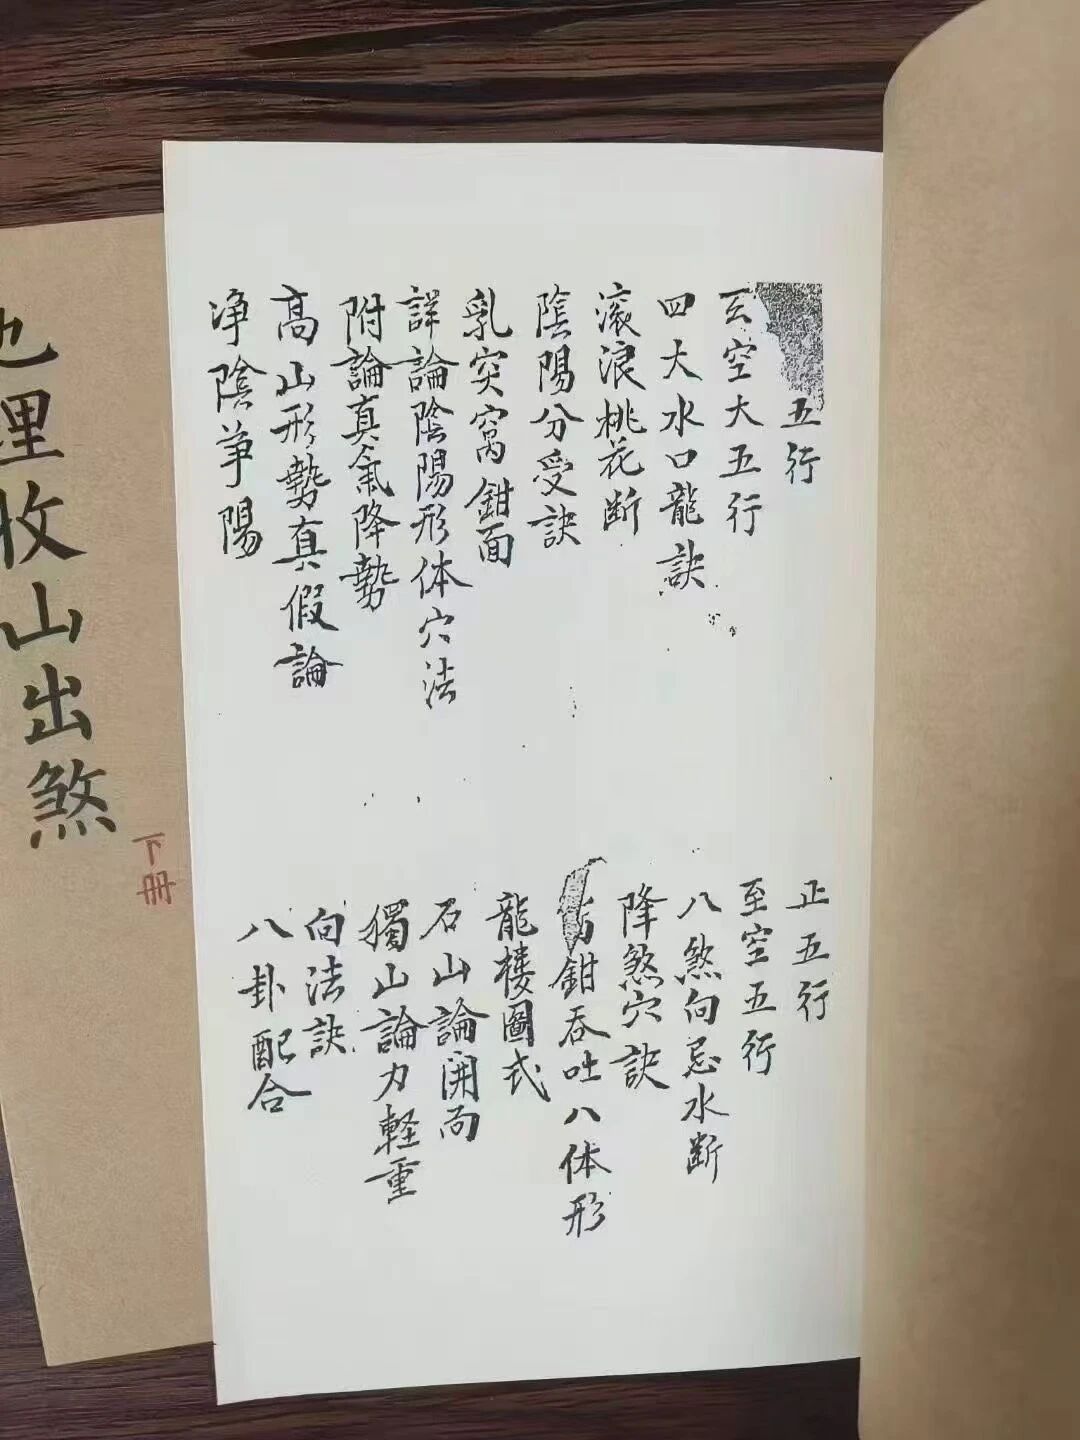 五行
玄空大五行
四大水口龍訣
滚浪桃花断
陰陽分受訣
乳突窩鉗面
詳論陰陽形体穴法
附論真氣降勢
高山形勢真假論
净陰爭陽
正五行
至空五行
八煞向忌水断
降煞穴訣
鉗吞吐八体形
龍楼圖式
石山論開面
獨山論力軽重
向法訣
八卦配合
地理收山出煞
下册